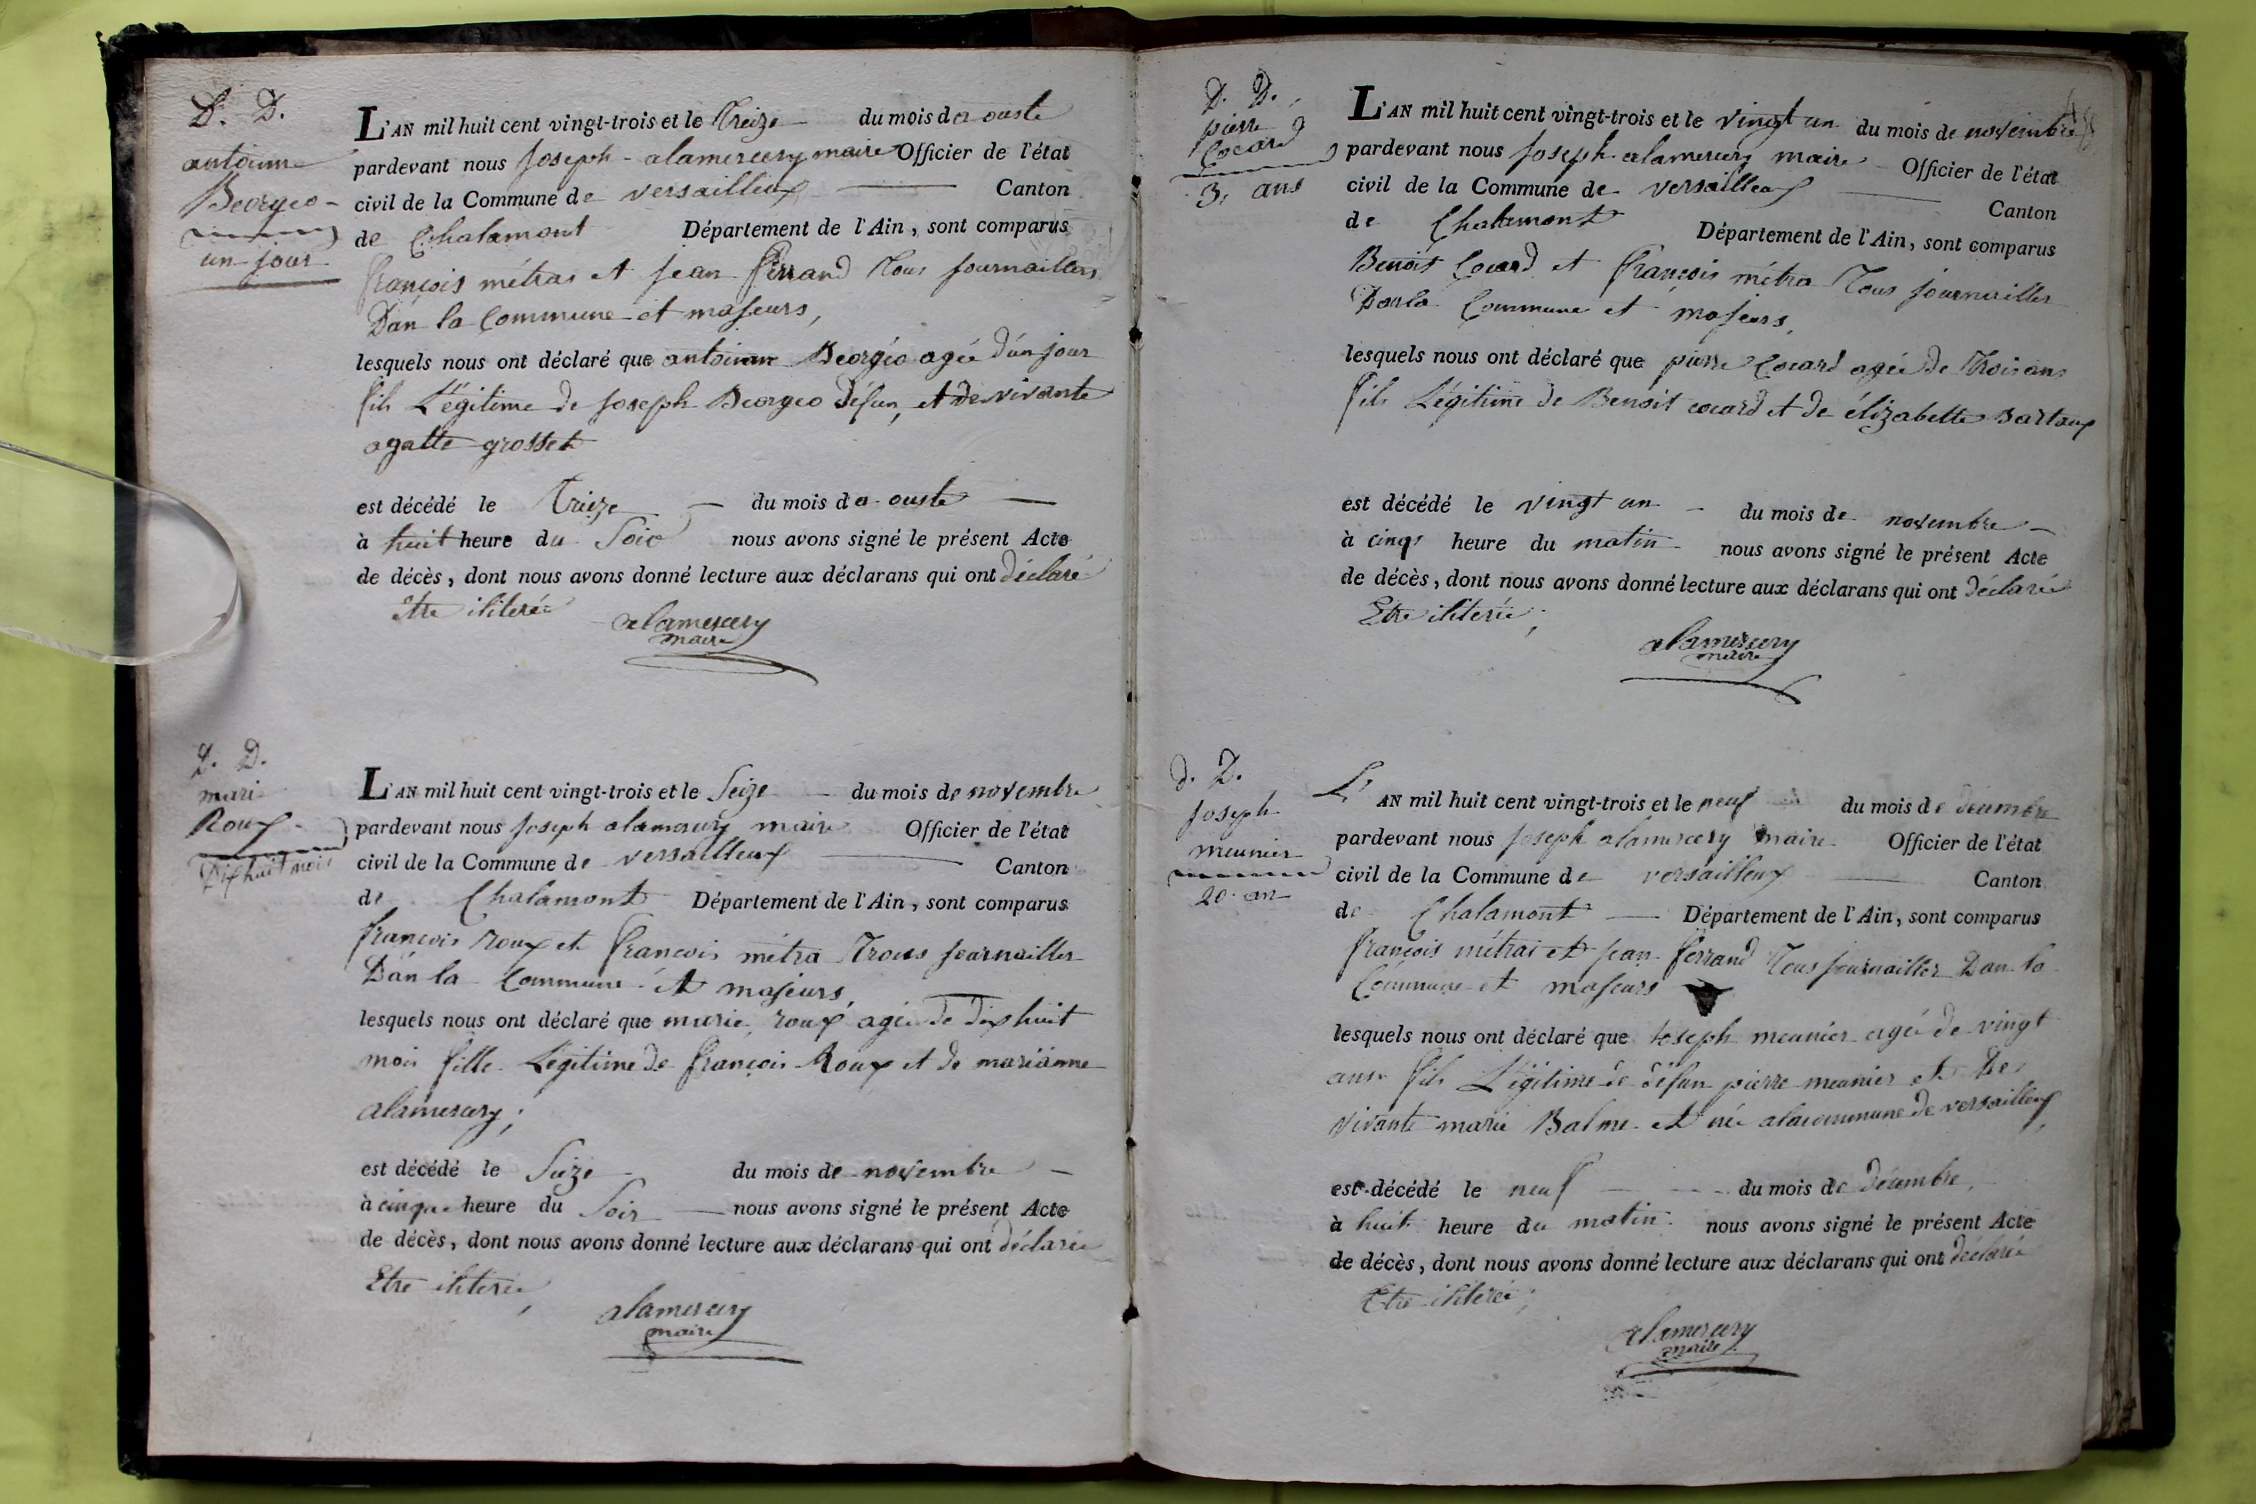 D. D.
antoinne
Beorgeo
un jour
L'AN mil huit cent vingt-trois et le Treize du mois da ouste
pardevant nous Joseph alamercery maire Officier de l'état
civil de la Commune de versailleux Canton
de Chalamont Département de l'Ain, sont comparus
françois métras et Jean ferrand Tous Journaillers
Dan la Commune et majeurs,
lesquels nous ont déclaré que antoinne Beorgéo agée d'un jour
fils Légitime de Joseph Beorgeo défun, et de vivante
agatte grosset
est décédé le Treize du mois da ouste
à huit heure du Soir nous avons signé le présent Acte
de décès, dont nous avons donné lecture aux déclarans qui ont déclaré
être iliterée
alamercery
maire
D. D.
mari
Roux
Dix huit mois
L'AN mil huit cent vingt-trois et le Seize du mois de novembre
pardevant nous Joseph alamercery maire Officier de l'état
civil de la Commune de versailleux Canton
de Chalamont Département de l'Ain, sont comparus
françois roux et françois métra Trous Journailler
Dan la Commune et majeurs,
lesquels nous ont déclaré que marie roux agée de dix huit
mois fille Légitime de françois Roux et de marianne
alamercery;
est décédé le Seize du mois de novembre
à cinque heure du Soir nous avons signé le présent Acte
de décès, dont nous avons donné lecture aux déclarans qui ont déclarée
Etre iliterée,
alamercery
maire
D. D.
pierre
Cocard
3, ans
L'AN mil huit cent vingt-trois et le vingt un du mois de novembre
pardevant nous Joseph alamercery maire Officier de l'état
civil de la Commune de versailleux Canton
de Chalamont Département de l'Ain, sont comparus
Benoit Cocard et françois métra Tous journailler
Dan la Commune et majeurs,
lesquels nous ont déclaré que pierre Cocard agée de Trois ans
fils Légitime de Benoit cocard et de élizabette Bartoux
est décédé le vingt un du mois de novembre
à cinqs heure du matin nous avons signé le présent Acte
de décès, dont nous avons donné lecture aux déclarans qui ont déclarée
Etre iliterée;
alamercery
maire
d. D.
Joseph
meunier
20 an
L'AN mil huit cent vingt-trois et le neuf du mois de décembre
pardevant nous Joseph alamercery maire Officier de l'état
civil de la Commune de versailleux Canton
de Chalamont Département de l'Ain, sont comparus
françois métrai et jean ferrand Tous journailler Dan la
Commune et majeurs
lesquels nous ont déclaré que Joseph meunier agée de vingt
ans fils Légitime de défun pierre meunier et de
vivante marie Balme et née a la commune de versailleux,
est décédé le neuf du mois de décembre,
à huit heure du matin nous avons signé le présent Acte
de décès, dont nous avons donné lecture aux déclarans qui ont déclarée
Etre iliterée;
alamercery
maire